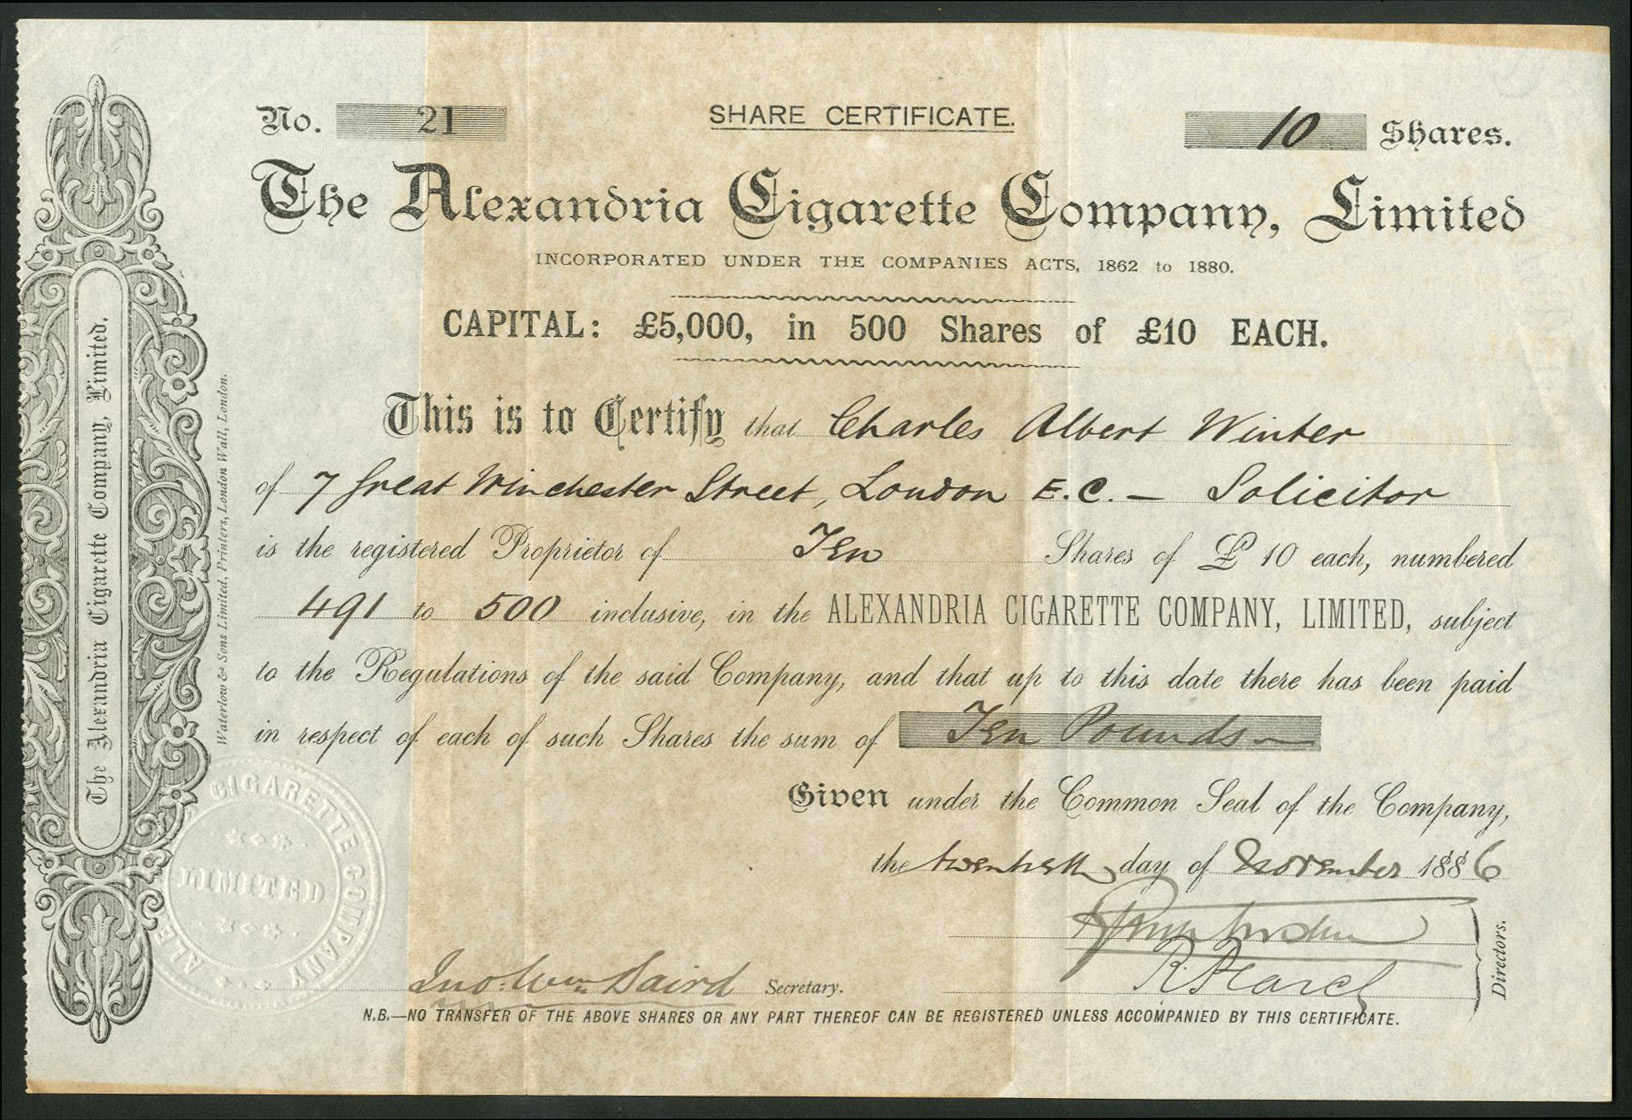 No. 21
SHARE CERTIFICATE.
10 Shares.
The Alexandria Cigarette Company, Limited
INCORPORATED UNDER THE COMPANIES ACTS, 1862 to 1880.
CAPITAL: £5,000, in 500 Shares of £10 EACH.
This is to Certify that Charles Albert Winter
of 7 Great Winchester Street, London E.C. — Solicitor
is the registered Proprietor of Ten Shares of £10 each, numbered
491 to 500 inclusive, in the ALEXANDRIA CIGARETTE COMPANY, LIMITED, subject
to the Regulations of the said Company, and that up to this date there has been paid
in respect of each of such Shares the sum of Ten Pounds —
Given under the Common Seal of the Company,
the twentieth day of November 1886
R. Pearce
Directors.
Jno. Wm. Baird Secretary.
N.B.—NO TRANSFER OF THE ABOVE SHARES OR ANY PART THEREOF CAN BE REGISTERED UNLESS ACCOMPANIED BY THIS CERTIFICATE.
The Alexandria Cigarette Company, Limited.
Waterlow & Sons Limited, Printers, London Wall, London.
CIGARETTE COMPANY
LIMITED